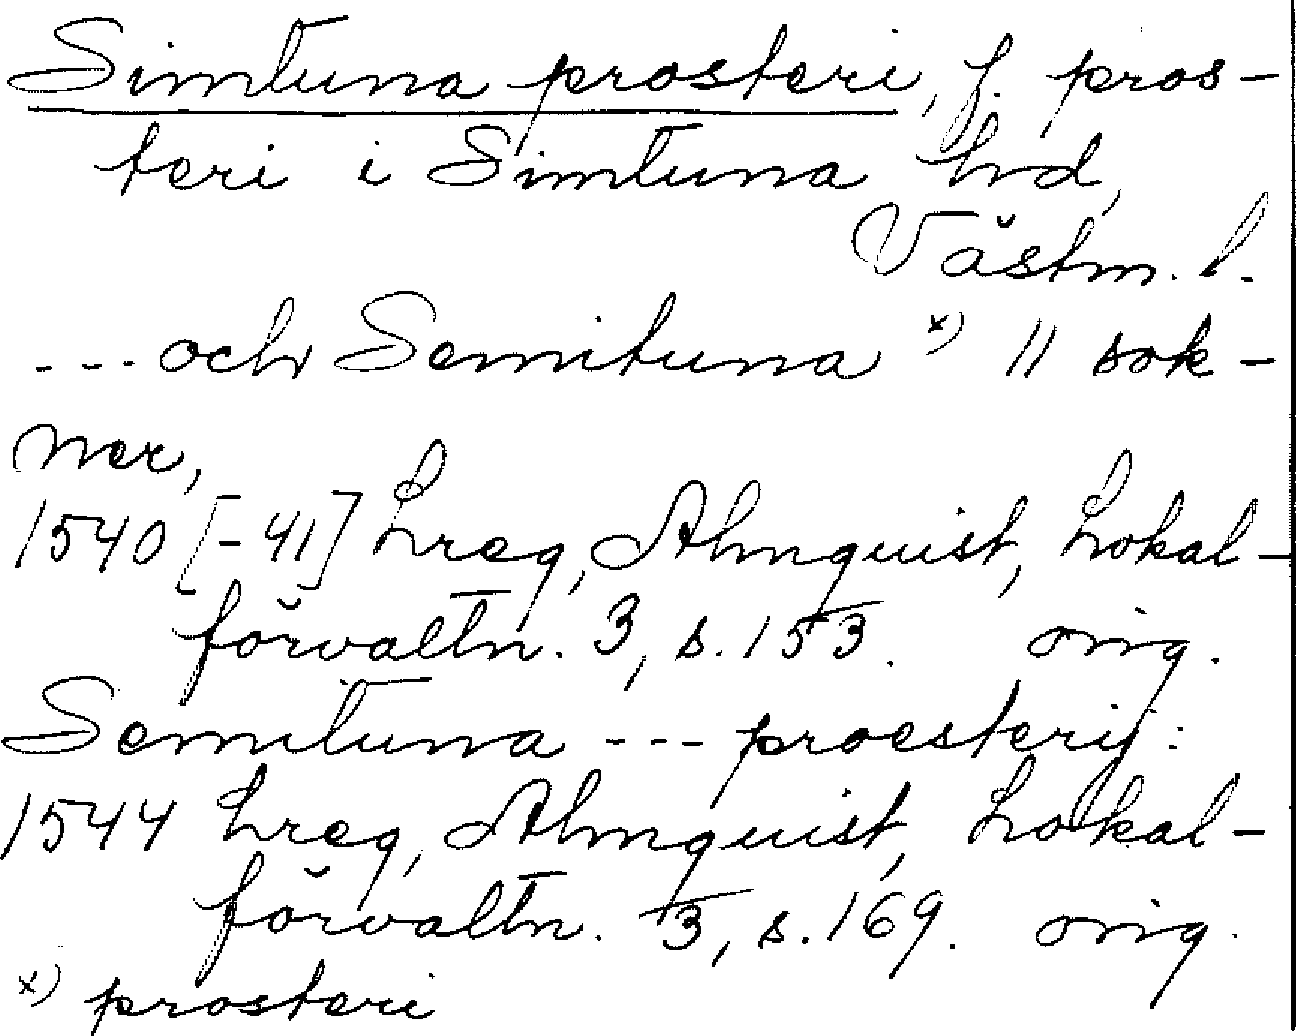 Simtuna prosteri, f. pros-
teri i Simtuna hrd,
Västm. l.
--- och Semituna x) 11 sok-
ner,
1540 [-41] Lreg, Almquist, Lokal-
förvaltn. 3, s. 153. orig.
Semituna --- proesterij:
1544 Lreg, Almquist, Lokal-
förvaltn. 3, s. 169. orig.
x) prosteri